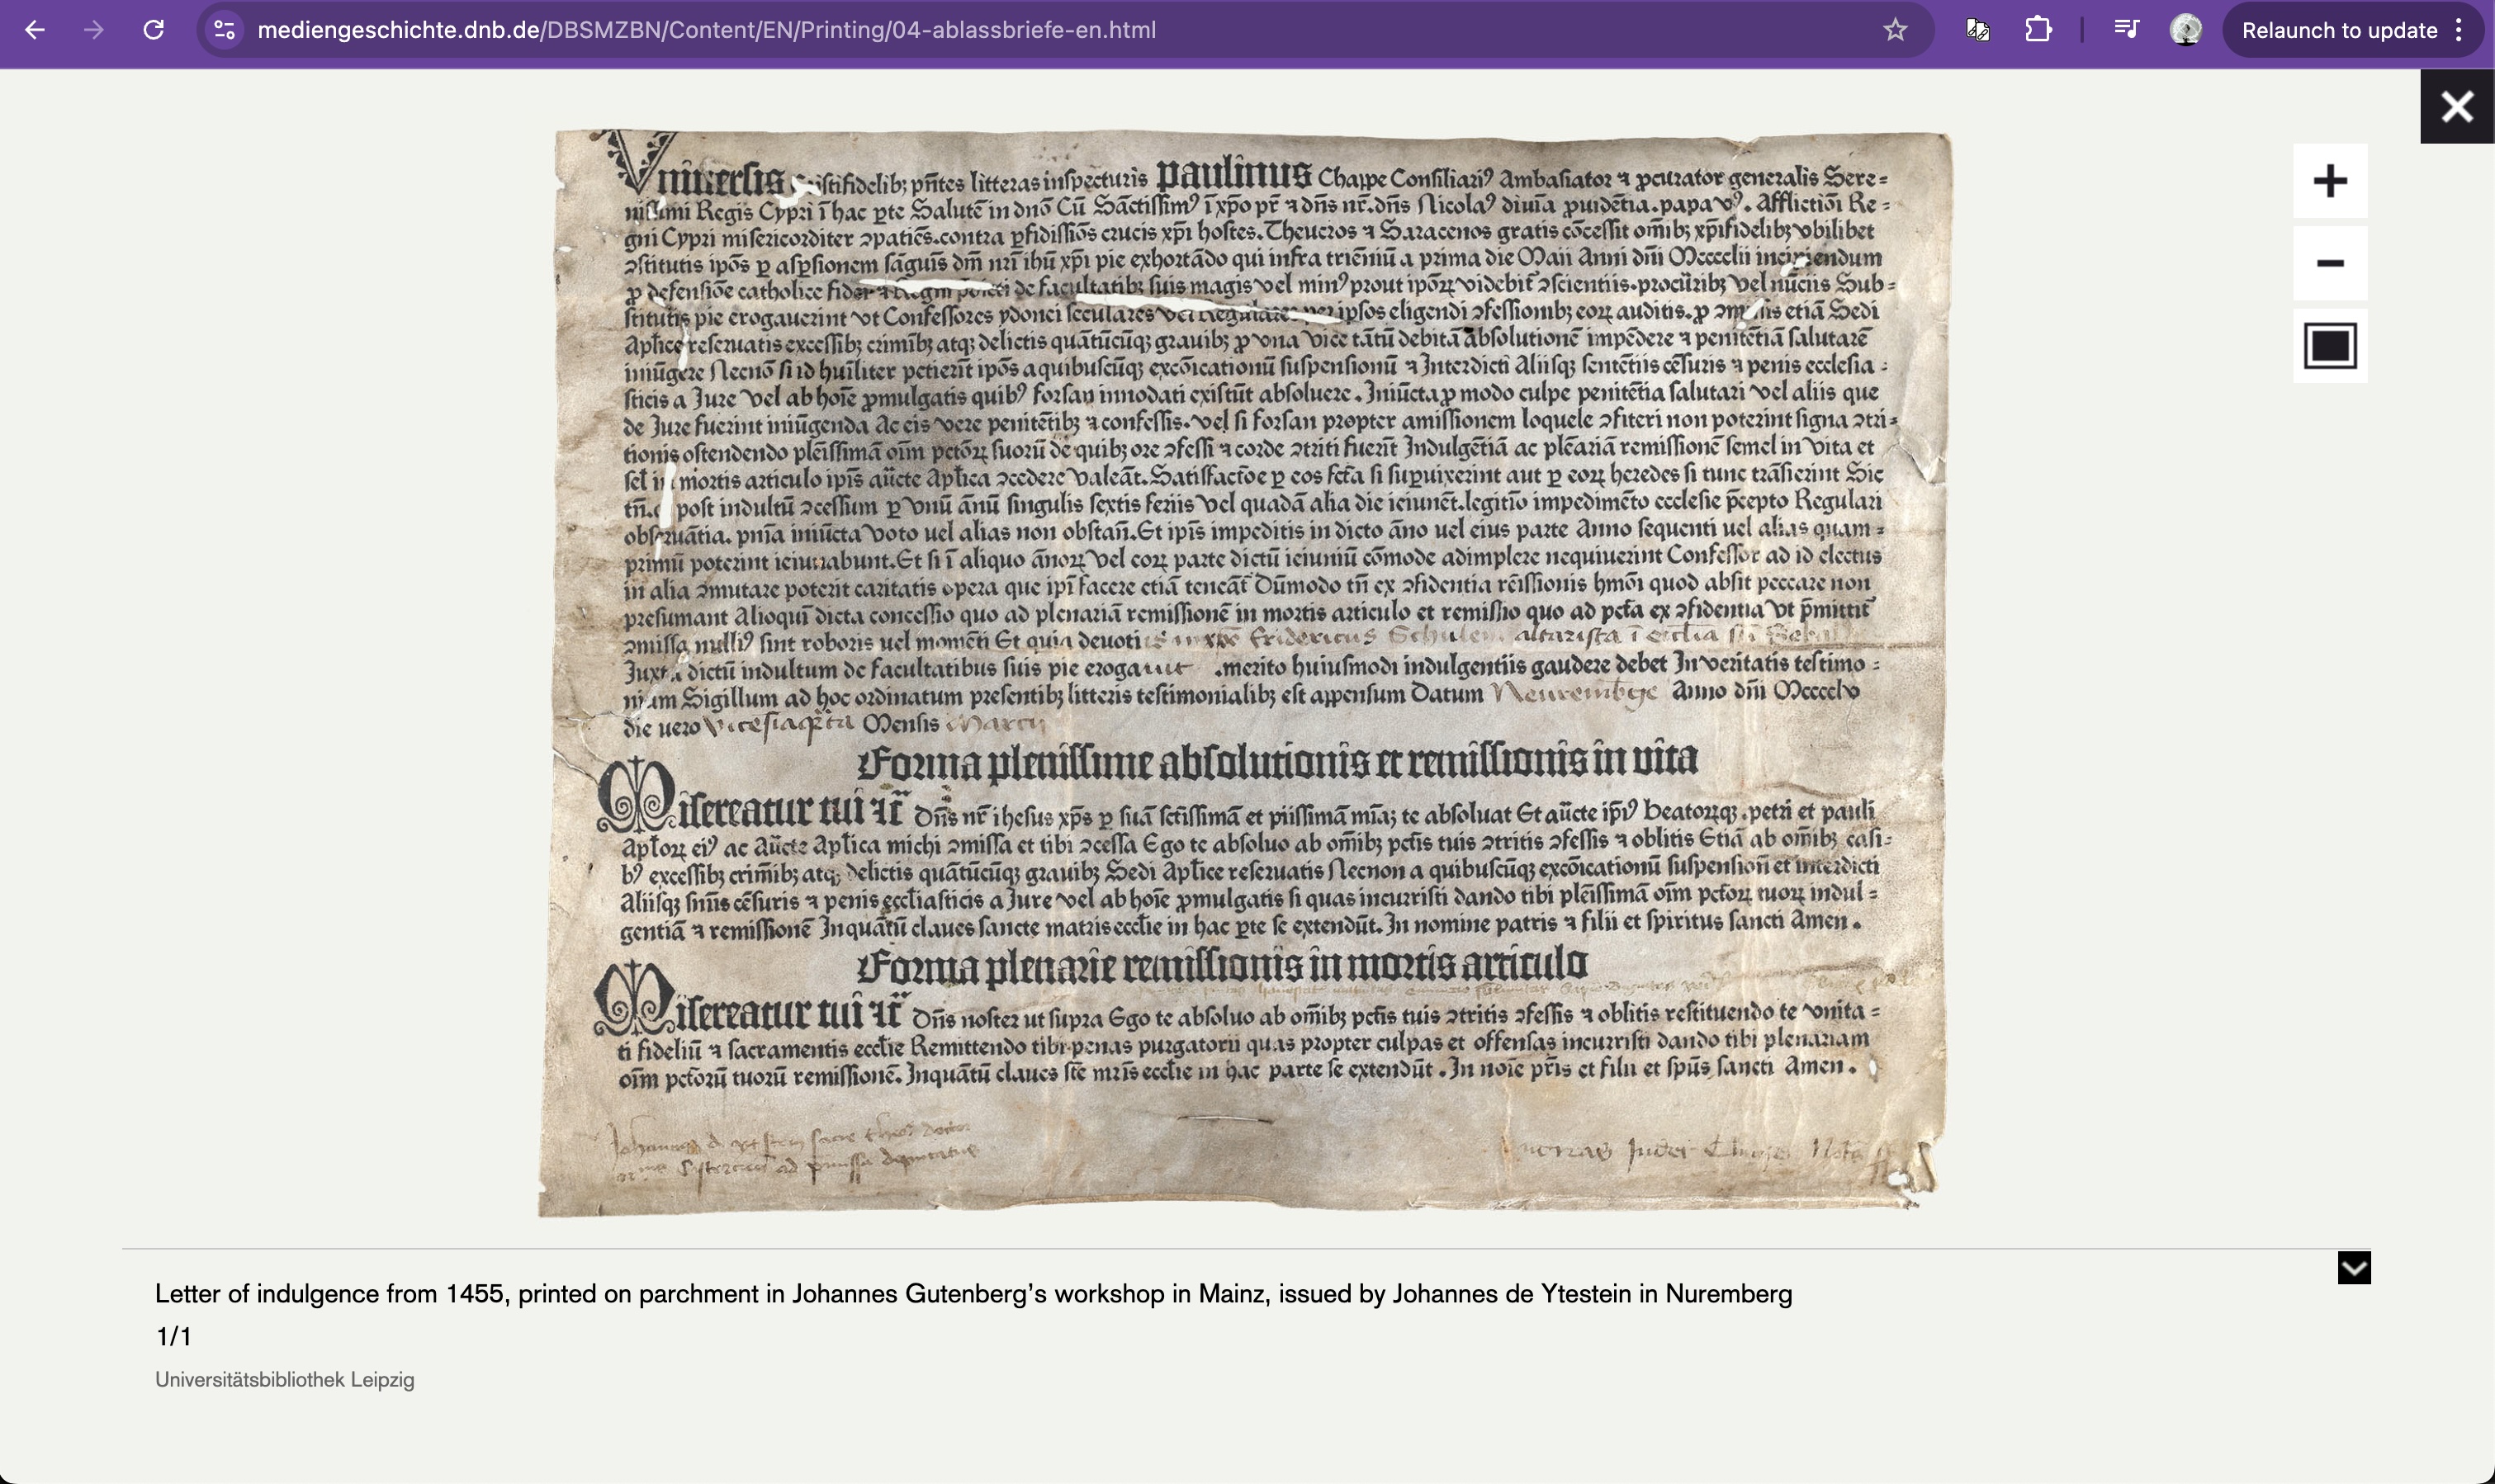 mediengeschichte.dnb.de/DBSMZBN/Content/EN/Printing/04-ablassbriefe-en.html
Relaunch to update
Vniuersis Cristifidelibꝫ pñtes litteras inſpecturis Paulinus Chappe Conſiliariꝰ Ambaſiator ⁊ ꝓcurator generalis Sere⸗
niſſimi Regis Cypri ī hac ꝑte Salutē in dnō Cū Sāctiſſimꝰ ī xp̄o pr̄ ⁊ dn̄s nr̄. dn̄s Nicolaꝰ diuīa ꝓuidētia. papa vꝰ. Afflictiōi Re⸗
gni Cypri miſericorditer ꝯpatiēs. contra ꝑfidiſſiōs crucis xp̄i hoſtes. Theucros ⁊ Saracenos gratis cōceſſit om̄ibꝫ xp̄ifidelibꝫ vbilibet
ꝯſtitutis ipōs ꝑ aſꝑſionem ſāguīs dm̄ nrī ihū xp̄i pie exhortādo qui infra triēniū a prima die Maii Anni dn̄i Mccccłii incipiendum
ꝓ defenſiōe catholice fidei ⁊ Regni de facultatibꝫ ſuis magis vel minꝰ prout ipōꝝ videbit̄ ꝯſcientiis. procūribꝫ vel nūciis Sub⸗
ſtitutis pie erogauerint vt Confeſſores ydonei ſeculares vel Regulares per ipſos eligendi ꝯfeſſionibꝫ eoꝝ auditis. ꝓ ꝯmiſſis etiā Sedi
Apłice reſeruatis exceſſibꝫ crimībꝫ atqꝫ delictis quātūcūqꝫ grauibꝫ ꝓ vna vice tātū debitā abſolutionē impēdere ⁊ penitētiā ſalutarē
iniūgere Necnō ſi id huīliter petierīt ipōs a quibuſcūqꝫ excōicationū ſuſpenſionū ⁊ Interdicti Aliiſqꝫ ſentētiis cēſuris ⁊ penis eccleſia⸗
ſticis a Jure vel ab hoīe ꝓmulgatis quibꝰ forſan innodati exiſtūt abſoluere. Iniūcta ꝓ modo culpe penitētia ſalutari vel aliis que
de Jure fuerint iniūgenda Ac eis vere penitētibꝫ ⁊ confeſſis. vel ſi forſan propter amiſſionem loquele ꝯfiteri non poterint ſigna ꝯtri⸗
tionis oſtendendo plēiſſimā oīm pctōꝝ ſuorū de quibꝫ ore ꝯfeſſi ⁊ corde ꝯtriti fuerīt Indulgētiā ac plēariā remiſſionē ſemel in vita et
ſeł in mortis articulo ipīs aūcte Apłica ꝯcedere valeāt. Satiſfactōe ꝑ eos fcta ſi ſuꝑuixerint aut ꝑ eoꝝ heredes ſi tunc trāſierint Sic
tn̄. post indultū ꝯceſſum ꝑ vnū ānū ſingulis ſextis feriis vel quadā alia die ieiunēt. legitīo impedimēto eccleſie p̄cepto Regulari
obſeruātia. pn̄ia iniūcta voto uel alias non obſtan̄. Et ipīs impeditis in dicto āno uel eius parte Anno ſequenti uel alias quam⸗
primū poterint ieiunabunt. Et ſi ī aliquo ānoꝝ vel eoꝝ parte dictū ieiuniū cōmode adimplere nequiuerint Confeſſor ad id electus
in alia ꝯmutare poterit caritatis opera que ipī facere etiā teneāt̄ Dūmodo tn̄ ex ꝯfidentia rēiſſionis hmōi quod abſit peccare non
preſumant Alioqui dicta conceſſio quo ad plenariā remiſſionē in mortis articulo et remiſſio quo ad pctā ex ꝯfidentia vt p̄mittit̄
ꝯmiſſa nulliꝰ ſint roboris uel momēti Et quia deuoti Fridericus Schulem altariſta ī
Juxta dictū indultum de facultatibus ſuis pie erogauit .merito huiuſmodi indulgentiis gaudere debet In veritatis teſtimo⸗
nium Sigillum ad hoc ordinatum preſentibꝫ litteris teſtimonialibꝫ eſt appenſum Datum Neurembge Anno dn̄i Mccccłv
die uero Menſis Marcii
Forma pleniſſime abſolutionis et remiſſionis in vita
Miſereatur tui ⁊c̄ Dn̄s nr̄ iheſus xp̄s ꝑ ſuā ſctīſſimā et piiſſimā mīaꝫ te abſoluat Et aūcte ip̄iꝰ beatoꝝqꝫ. petri et pauli
Apłoꝝ eiꝰ ac Aūcte Apłica michi ꝯmiſſa et tibi ꝯceſſa Ego te abſoluo ab om̄ibꝫ pctīs tuis ꝯtritis ꝯfeſſis ⁊ oblitis Etiā ab om̄ibꝫ caſi⸗
bꝰ exceſſibꝫ crimībꝫ atqꝫ delictis quātūcūqꝫ grauibꝫ Sedi Apłice reſeruatis Necnon a quibuſcūqꝫ excōicationū ſuſpenſion̄ et interdicti
Aliiſqꝫ ſnīis cēſuris ⁊ penis eccłiaſticis a Jure vel ab hoīe ꝓmulgatis ſi quas incurriſti dando tibi plēiſſimā oīm pctōꝝ tuoꝝ indul⸗
gentiā ⁊ remiſſionē Inquātū claues ſancte matris eccłie in hac ꝑte ſe extendūt. In nomine patris ⁊ filii et ſpiritus ſancti Amen.
Forma plenarie remiſſionis in mortis articulo
Miſereatur tui ⁊c̄ Dn̄s noſter ut ſupra Ego te abſoluo ab om̄ibꝫ pctīs tuis ꝯtritis ꝯfeſſis ⁊ oblitis reſtituendo te vnita⸗
ti fideliū ⁊ ſacramentis eccłie Remittendo tibi penas purgatorii quas propter culpas et offenſas incurriſti dando tibi plenariam
oīm pctōrū tuorū remiſſionē. Inquātū claues ſtē mrīs eccłie in hac parte ſe extendūt. In noīe pr̄is et filii et ſpūs ſancti Amen.
Letter of indulgence from 1455, printed on parchment in Johannes Gutenberg’s workshop in Mainz, issued by Johannes de Ytestein in Nuremberg
1/1
Universitätsbibliothek Leipzig